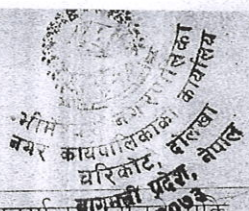 भीमे नगरपालिका
नगर कार्यपालिकाको कार्यालय
चरिकोट, दोलखा
बागमती प्रदेश, नेपाल
२०७३